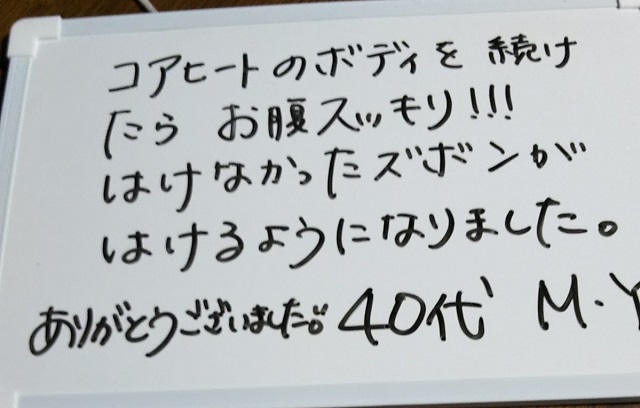 コアヒートのボディを続け
たらお腹スッキリ!!!
はけなかったズボンが
はけるようになりました。
ありがとうございました。40代 M.Y